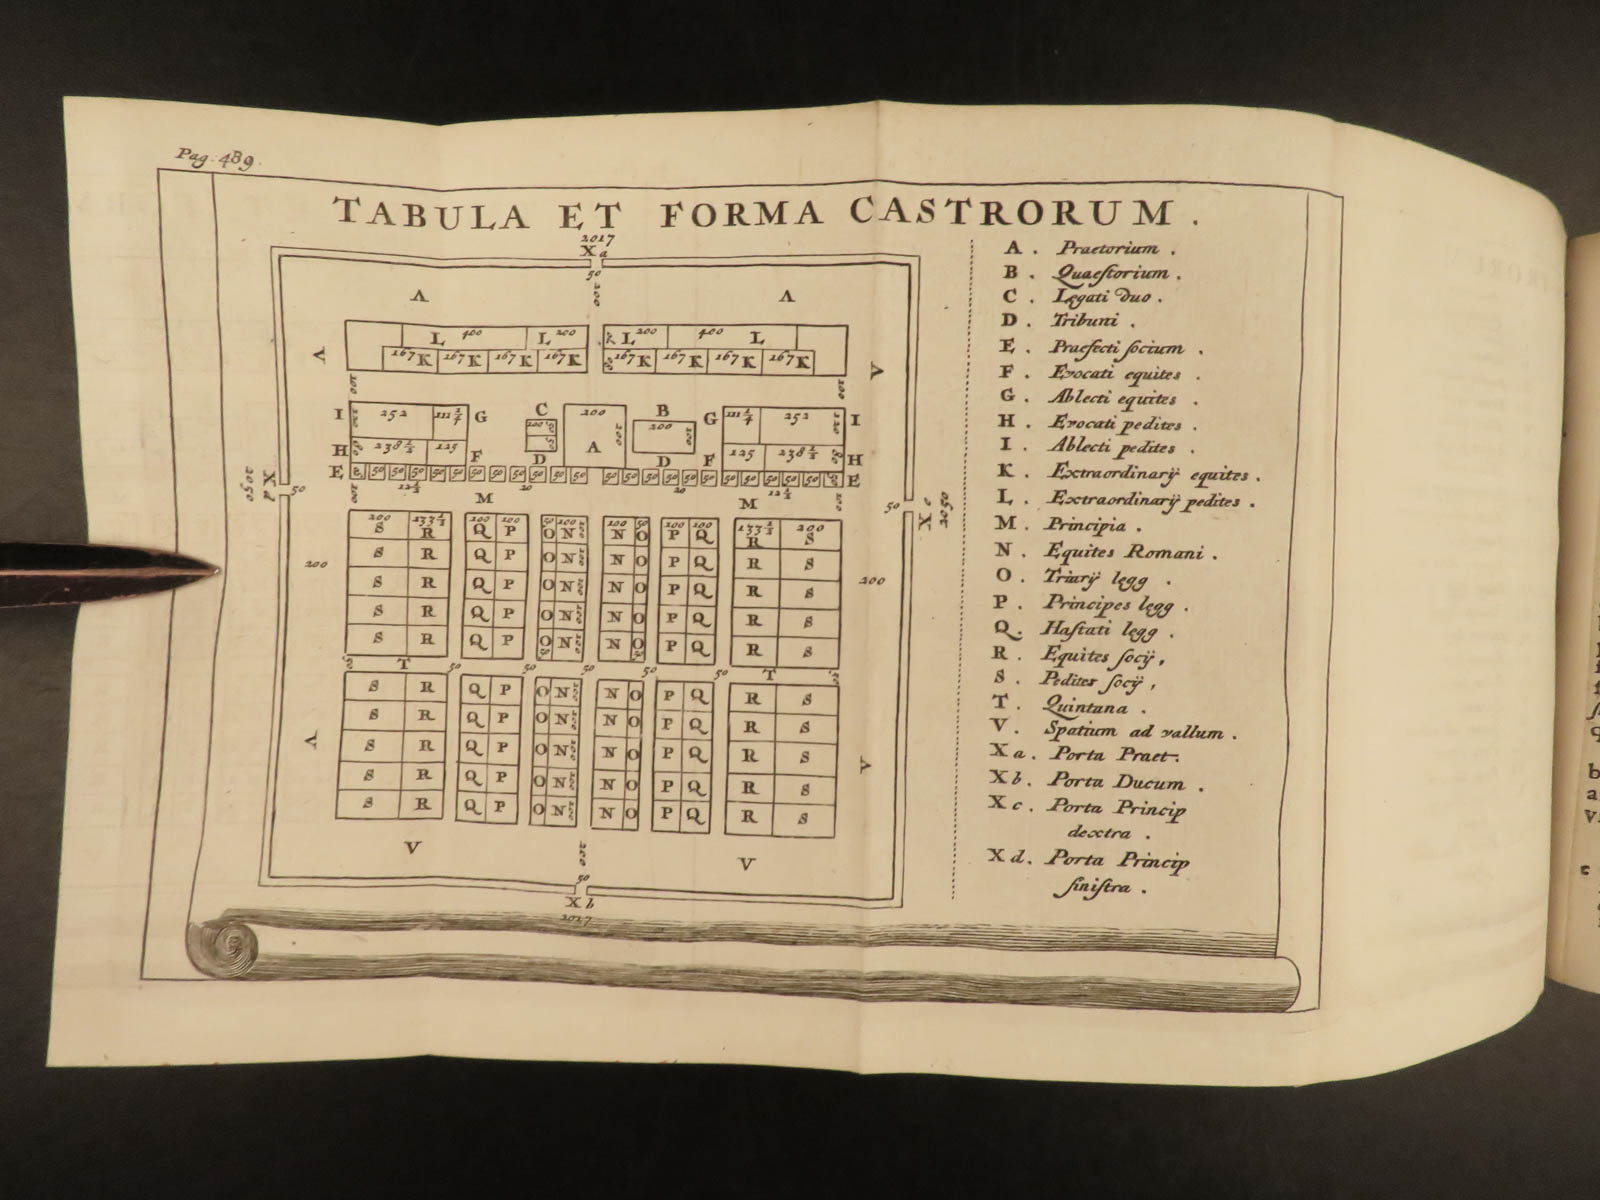 Pag. 489.
TABULA ET FORMA CASTRORUM.
2017
X a
50
200
V V
L 400 L 200 L 200 400 L
167 K 167 K 167 K 167 K 167 K 167 K 167 K 167 K
V V
200 200
I 252 111 1/4 G C 200 B G 111 1/4 252 I
100 200
H 238 1/2 125 F D A D F 125 238 1/2 H
E 50 50 50 50 50 50 50 50 50 50 50 50 50 50 50 50 50 50 50 E
12 1/2 20 20 12 1/2
M M
X d 50 50 X c
2050 2050
200 133 1/3 100 100 50 100 100 50 100 100 133 1/3 200
S R Q P O N N O P Q R S
S R Q P O N N O P Q R S
200 200
S R Q P O N N O P Q R S
S R Q P O N N O P Q R S
S R Q P O N N O P Q R S
50 T 50 50 50 50 50 T 50
S R Q P O N N O P Q R S
S R Q P O N N O P Q R S
V V
S R Q P O N N O P Q R S
S R Q P O N N O P Q R S
S R Q P O N N O P Q R S
V V
200
50
X b
2017
A. Praetorium.
B. Quaeſtorium.
C. Legati duo.
D. Tribuni.
E. Praefecti ſocium.
F. Evocati equites.
G. Ablecti equites.
H. Evocati pedites.
I. Ablecti pedites.
K. Extraordinarÿ equites.
L. Extraordinarÿ pedites.
M. Principia.
N. Equites Romani.
O. Triarÿ legg.
P. Principes legg.
Q. Haſtati legg.
R. Equites ſocÿ,
S. Pedites ſocÿ,
T. Quintana.
V. Spatium ad vallum.
X a. Porta Praet.
X b. Porta Ducum.
X c. Porta Princip
dextra.
X d. Porta Princip
ſiniſtra.